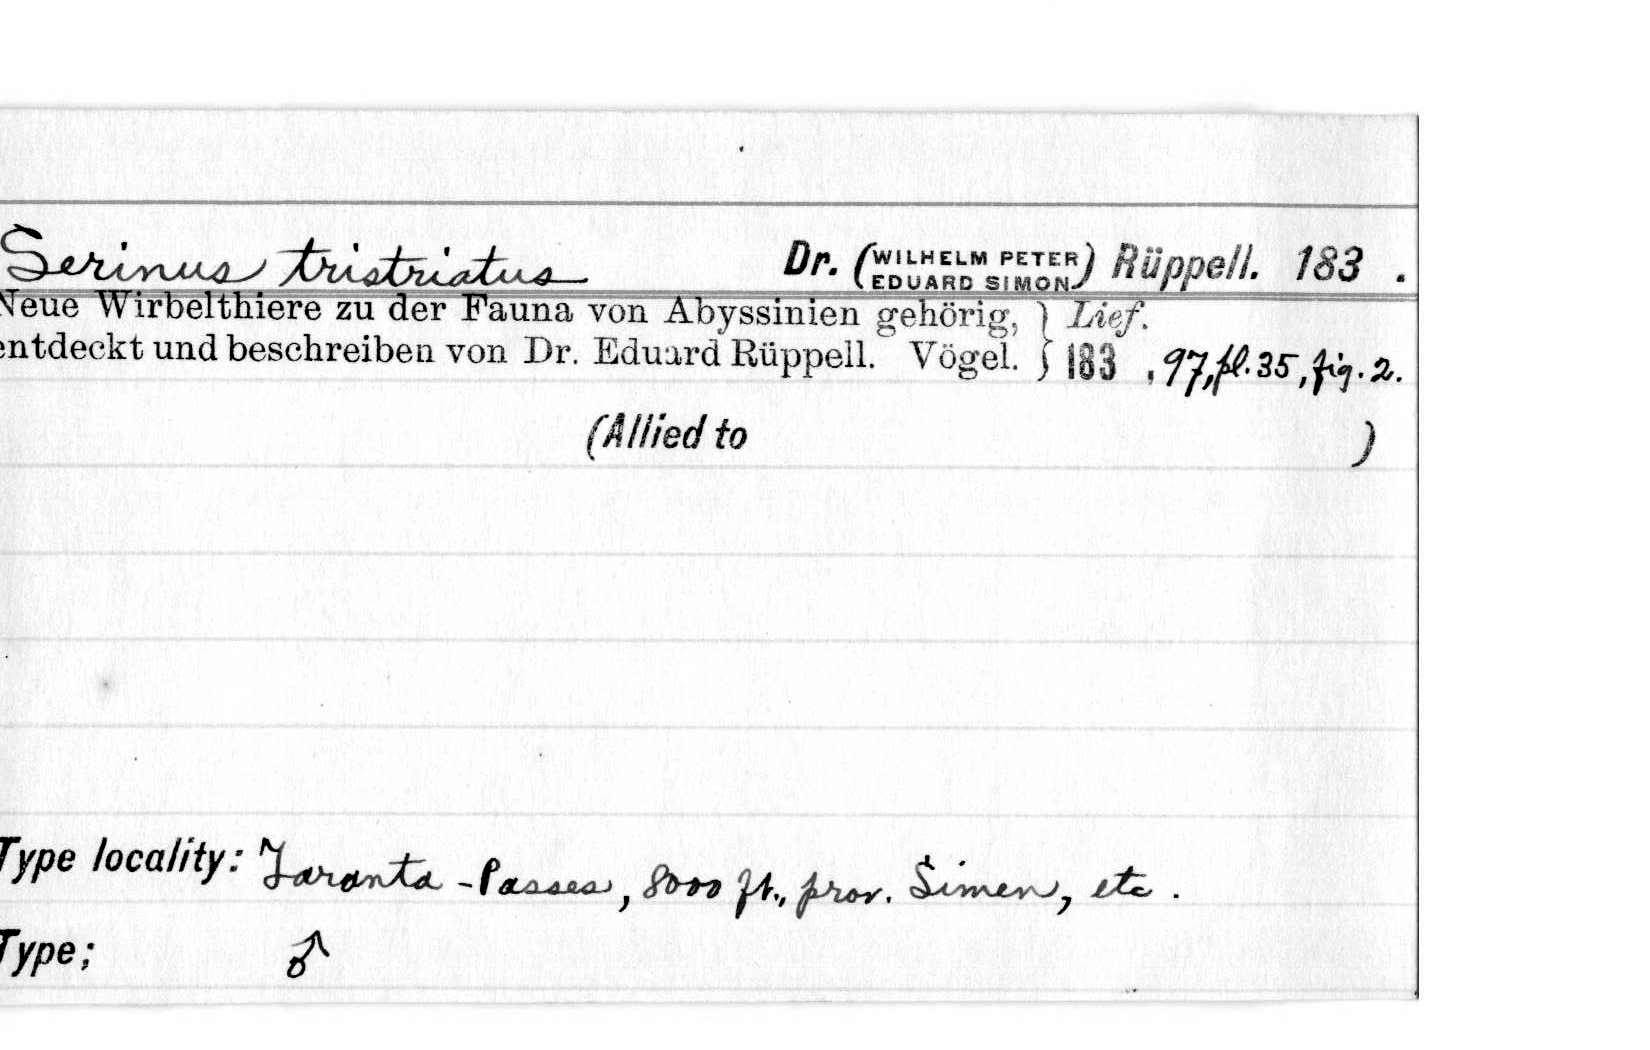 Serinus tristriatus Dr. (WILHELM PETER EDUARD SIMON) Rüppell. 183 .
Neue Wirbelthiere zu der Fauna von Abyssinien gehörig, } Lief.
entdeckt und beschreiben von Dr. Eduard Rüppell. Vögel. } 183 , 97, pl. 35, fig. 2.
(Allied to )
Type locality: Taranta-Passes, 8000 ft., prov. Simen, etc.
Type; ♂